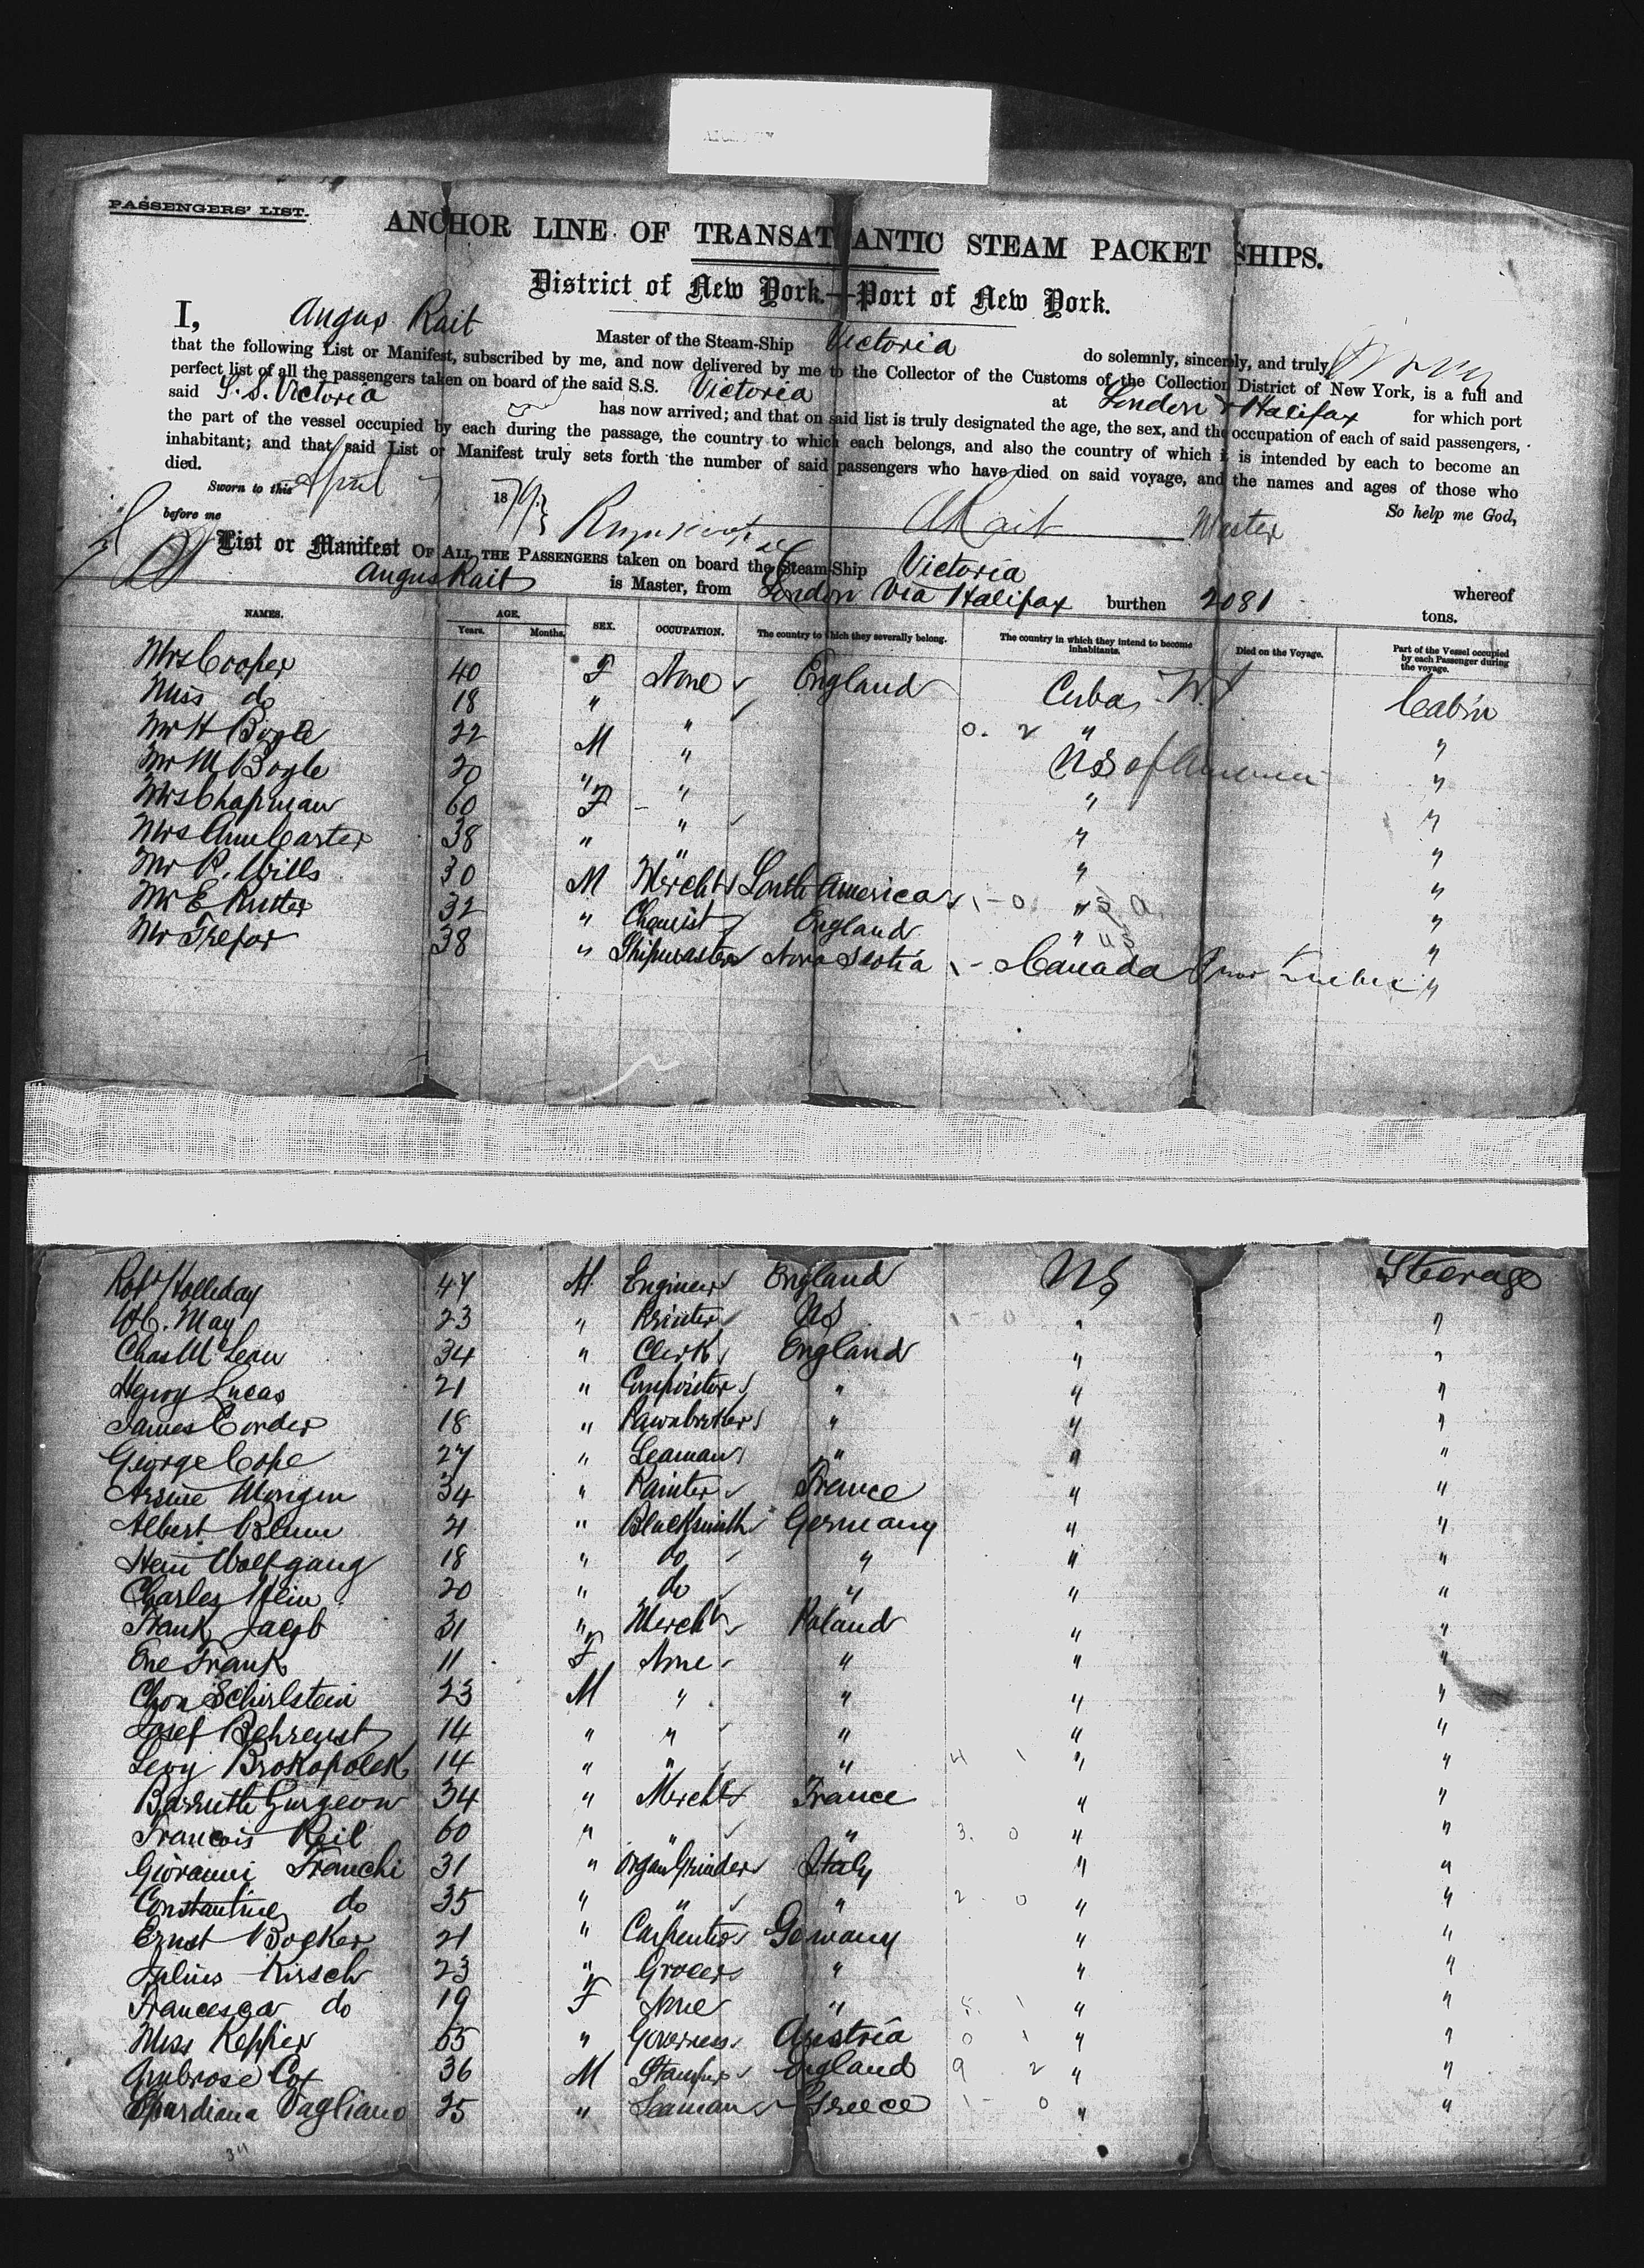 PASSENGERS' LIST.
ANCHOR LINE OF TRANSATLANTIC STEAM PACKET SHIPS.
District of New York.—Port of New York.
I, Angus Rait Master of the Steam-Ship Victoria do solemnly, sincerely, and truly
that the following List or Manifest, subscribed by me, and now delivered by me to the Collector of the Customs of the Collection District of New York, is a full and
perfect list of all the passengers taken on board of the said S.S. Victoria at London & Halifax for which port
said S.S. Victoria has now arrived; and that on said list is truly designated the age, the sex, and the occupation of each of said passengers,
the part of the vessel occupied by each during the passage, the country to which each belongs, and also the country of which it is intended by each to become an
inhabitant; and that said List or Manifest truly sets forth the number of said passengers who have died on said voyage, and the names and ages of those who
died.
So help me God,
Sworn to this April 7 1879
before me ARait Master
List or Manifest OF ALL THE PASSENGERS taken on board the Steam-Ship Victoria whereof
Angus Rait is Master, from London Via Halifax burthen 2081 tons.
NAMES. AGE. Years. Months. SEX. OCCUPATION. The country to which they severally belong. The country in which they intend to become inhabitants. Died on the Voyage. Part of the Vessel occupied by each Passenger during the voyage.
Mrs Cooper 40 F None England Cuba W.I Cabin
Miss do 18 " " " "
Mr H Bogle 22 M " US of America "
Mr M Bogle 20 " " " "
Mrs Chapman 60 F " " "
Mrs Ann Carter 38 " " " "
Mr P. Wills 30 M Mercht South America 1-0 " S A "
Mr E Rutter 32 " Chemist England " US "
Mr Trefor 38 " Shipmaster Nova Scotia 1- Canada "
Robt Holliday 47 M Engineer England US Steerage
May 23 " Printer US 1-0 " "
Chas McLean 34 " Clerk England " "
Henry Lucas 21 " Compositor " " "
James Corder 18 " Pawnbroker " " "
George Cope 27 " Seaman " " "
Arsene 34 " Painter France " "
Albert Blum 21 " Blacksmith Germany " "
Wolfgang 18 " do " " "
Charles Klein 20 " do " " "
Frank Jacob 31 " Mercht Poland " "
Ene Frank 11 F None " " "
Chon Schirlstein 23 M " " " "
Josef Behrenst 14 " " " " "
Levy Brokopolek 14 " " " 4 1 " "
Gurgeon 34 " Mercht France " "
Francois Reil 60 " " " 3. 0 " "
Giovanni Franchi 31 " Organ Grinder Italy " "
Constantine do 35 " " " 2 0 " "
Ernst Bocker 21 " Carpenter Germany " "
Julius Kirsch 23 " Grocer " " "
Francesca do 19 F None " 5. 1 " "
Miss Kepper 55 " Governess Austria 0 1 " "
Ambrose Cox 36 M England 9 2 " "
Vagliano 25 " Seaman Greece 1- 0 " "